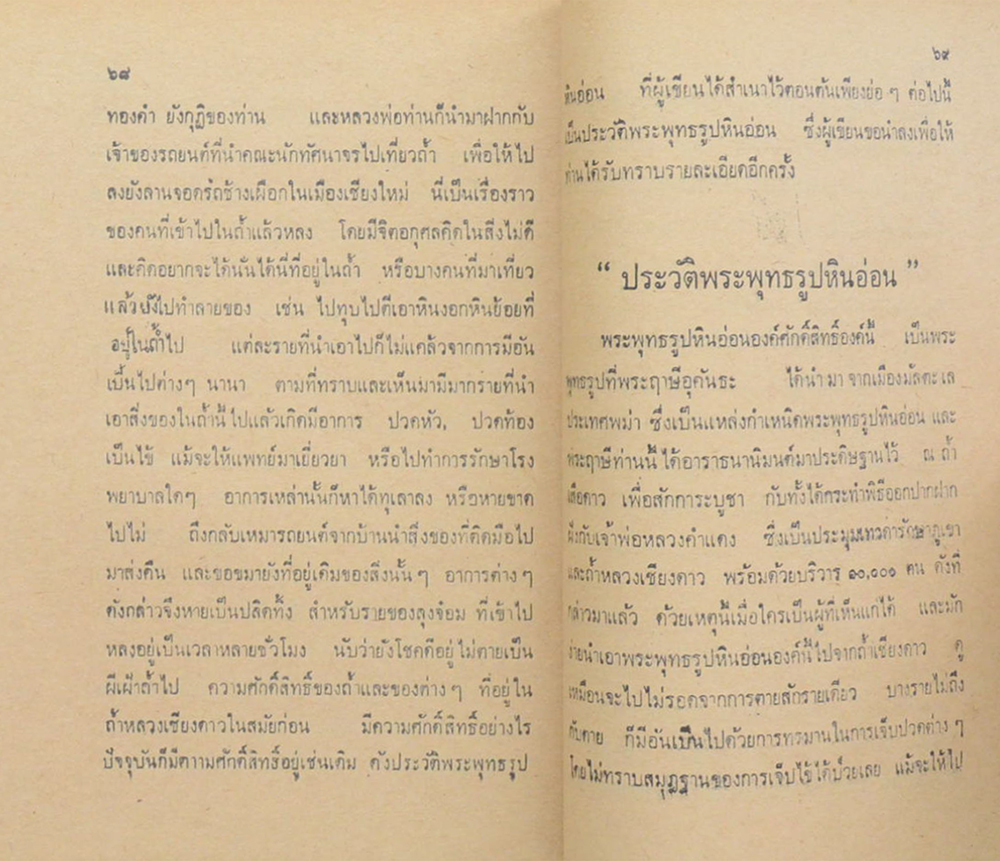 ๖๘
ทองคำ ยังกุฏิของท่าน และหลวงพ่อท่านก็นำมาฝากกับ
เจ้าของรถยนต์ที่นำคณะนักทัศนาจรไปเที่ยวถ้ำ เพื่อให้ไป
ลงยังลานจอดรถช้างเผือกในเมืองเชียงใหม่ นี่เป็นเรื่องราว
ของคนที่เข้าไปในถ้ำแล้วหลง โดยมีจิตอกุศลคิดในสิ่งไม่ดี
และคิดอยากจะได้นั่นได้นี่ที่อยู่ในถ้ำ หรือบางคนที่มาเที่ยว
แล้วยังไปทำลายของ เช่น ไปทุบไปตีเอาหินงอกหินย้อยที่
อยู่ในถ้ำไป แต่ละรายที่นำเอาไปก็ไม่แคล้วจากการมีอัน
เป็นไปต่างๆ นานา ตามที่ทราบและเห็นมามีมากรายที่นำ
เอาสิ่งของในถ้ำนี้ไปแล้วเกิดมีอาการ ปวดหัว, ปวดท้อง
เป็นไข้ แม้จะให้แพทย์มาเยี่ยวยา หรือไปทำการรักษาโรง
พยาบาลใดๆ อาการเหล่านั้นก็หาได้ทุเลาลง หรือหายขาด
ไปไม่ ถึงกลับเหมารถยนต์จากบ้านนำสิ่งของที่ติดมือไป
มาส่งคืน และขอขมายังที่อยู่เดิมของสิ่งนั้นๆ อาการต่างๆ
ดังกล่าวจึงหายเป็นปลิดทิ้ง สำหรับรายของลุงจ๋อม ที่เข้าไป
หลงอยู่เป็นเวลาหลายชั่วโมง นับว่ายังโชคดีอยู่ไม่ตายเป็น
ผีเฝ้าถ้ำไป ความศักดิ์สิทธิ์ของถ้ำและของต่างๆ ที่อยู่ใน
ถ้ำหลวงเชียงดาวในสมัยก่อน มีความศักดิ์สิทธิ์อย่างไร
ปัจจุบันก็มีความศักดิ์สิทธิ์อยู่เช่นเดิม ดังประวัติพระพุทธรูป
๖๙
หินอ่อน ที่ผู้เขียนได้สำเนาไว้ตอนต้นเพียงย่อๆ ต่อไปนี้
เป็นประวัติพระพุทธรูปหินอ่อน ซึ่งผู้เขียนขอนำลงเพื่อให้
ท่านได้รับทราบรายละเอียดอีกครั้ง
“ ประวัติพระพุทธรูปหินอ่อน ”
พระพุทธรูปหินอ่อนองค์ศักดิ์สิทธิ์องค์นี้ เป็นพระ
พุทธรูปที่พระฤาษีอุคันธะ ได้นำมาจากเมืองมัลดะเล
ประเทศพม่า ซึ่งเป็นแหล่งกำเหนิดพระพุทธรูปหินอ่อน และ
พระฤาษีท่านนี้ได้อาราธนานิมนต์มาประดิษฐานไว้ ณ ถ้ำ
เชียงดาว เพื่อสักการะบูชา กับทั้งได้กระทำพิธีออกปากฝาก
ฝังกับเจ้าพ่อหลวงคำแดง ซึ่งเป็นประมุขเทวดารักษาภูเขา
และถ้ำหลวงเชียงดาว พร้อมด้วยบริวาร ๑๐,๐๐๐ ตน ดังที่
กล่าวมาแล้ว ด้วยเหตุนี้เมื่อใครเป็นผู้ที่เห็นแก่ได้ และมัก
ง่ายนำเอาพระพุทธรูปหินอ่อนองค์นี้ไปจากถ้ำเชียงดาว ดู
เหมือนจะไปไม่รอดจากการตายสักรายเดียว บางรายไม่ถึง
กับตาย ก็มีอันเป็นไปด้วยการทรมานในการเจ็บปวดต่างๆ
โดยไม่ทราบสมุฏฐานของการเจ็บไข้ได้ป่วยเลย แม้จะให้ไป